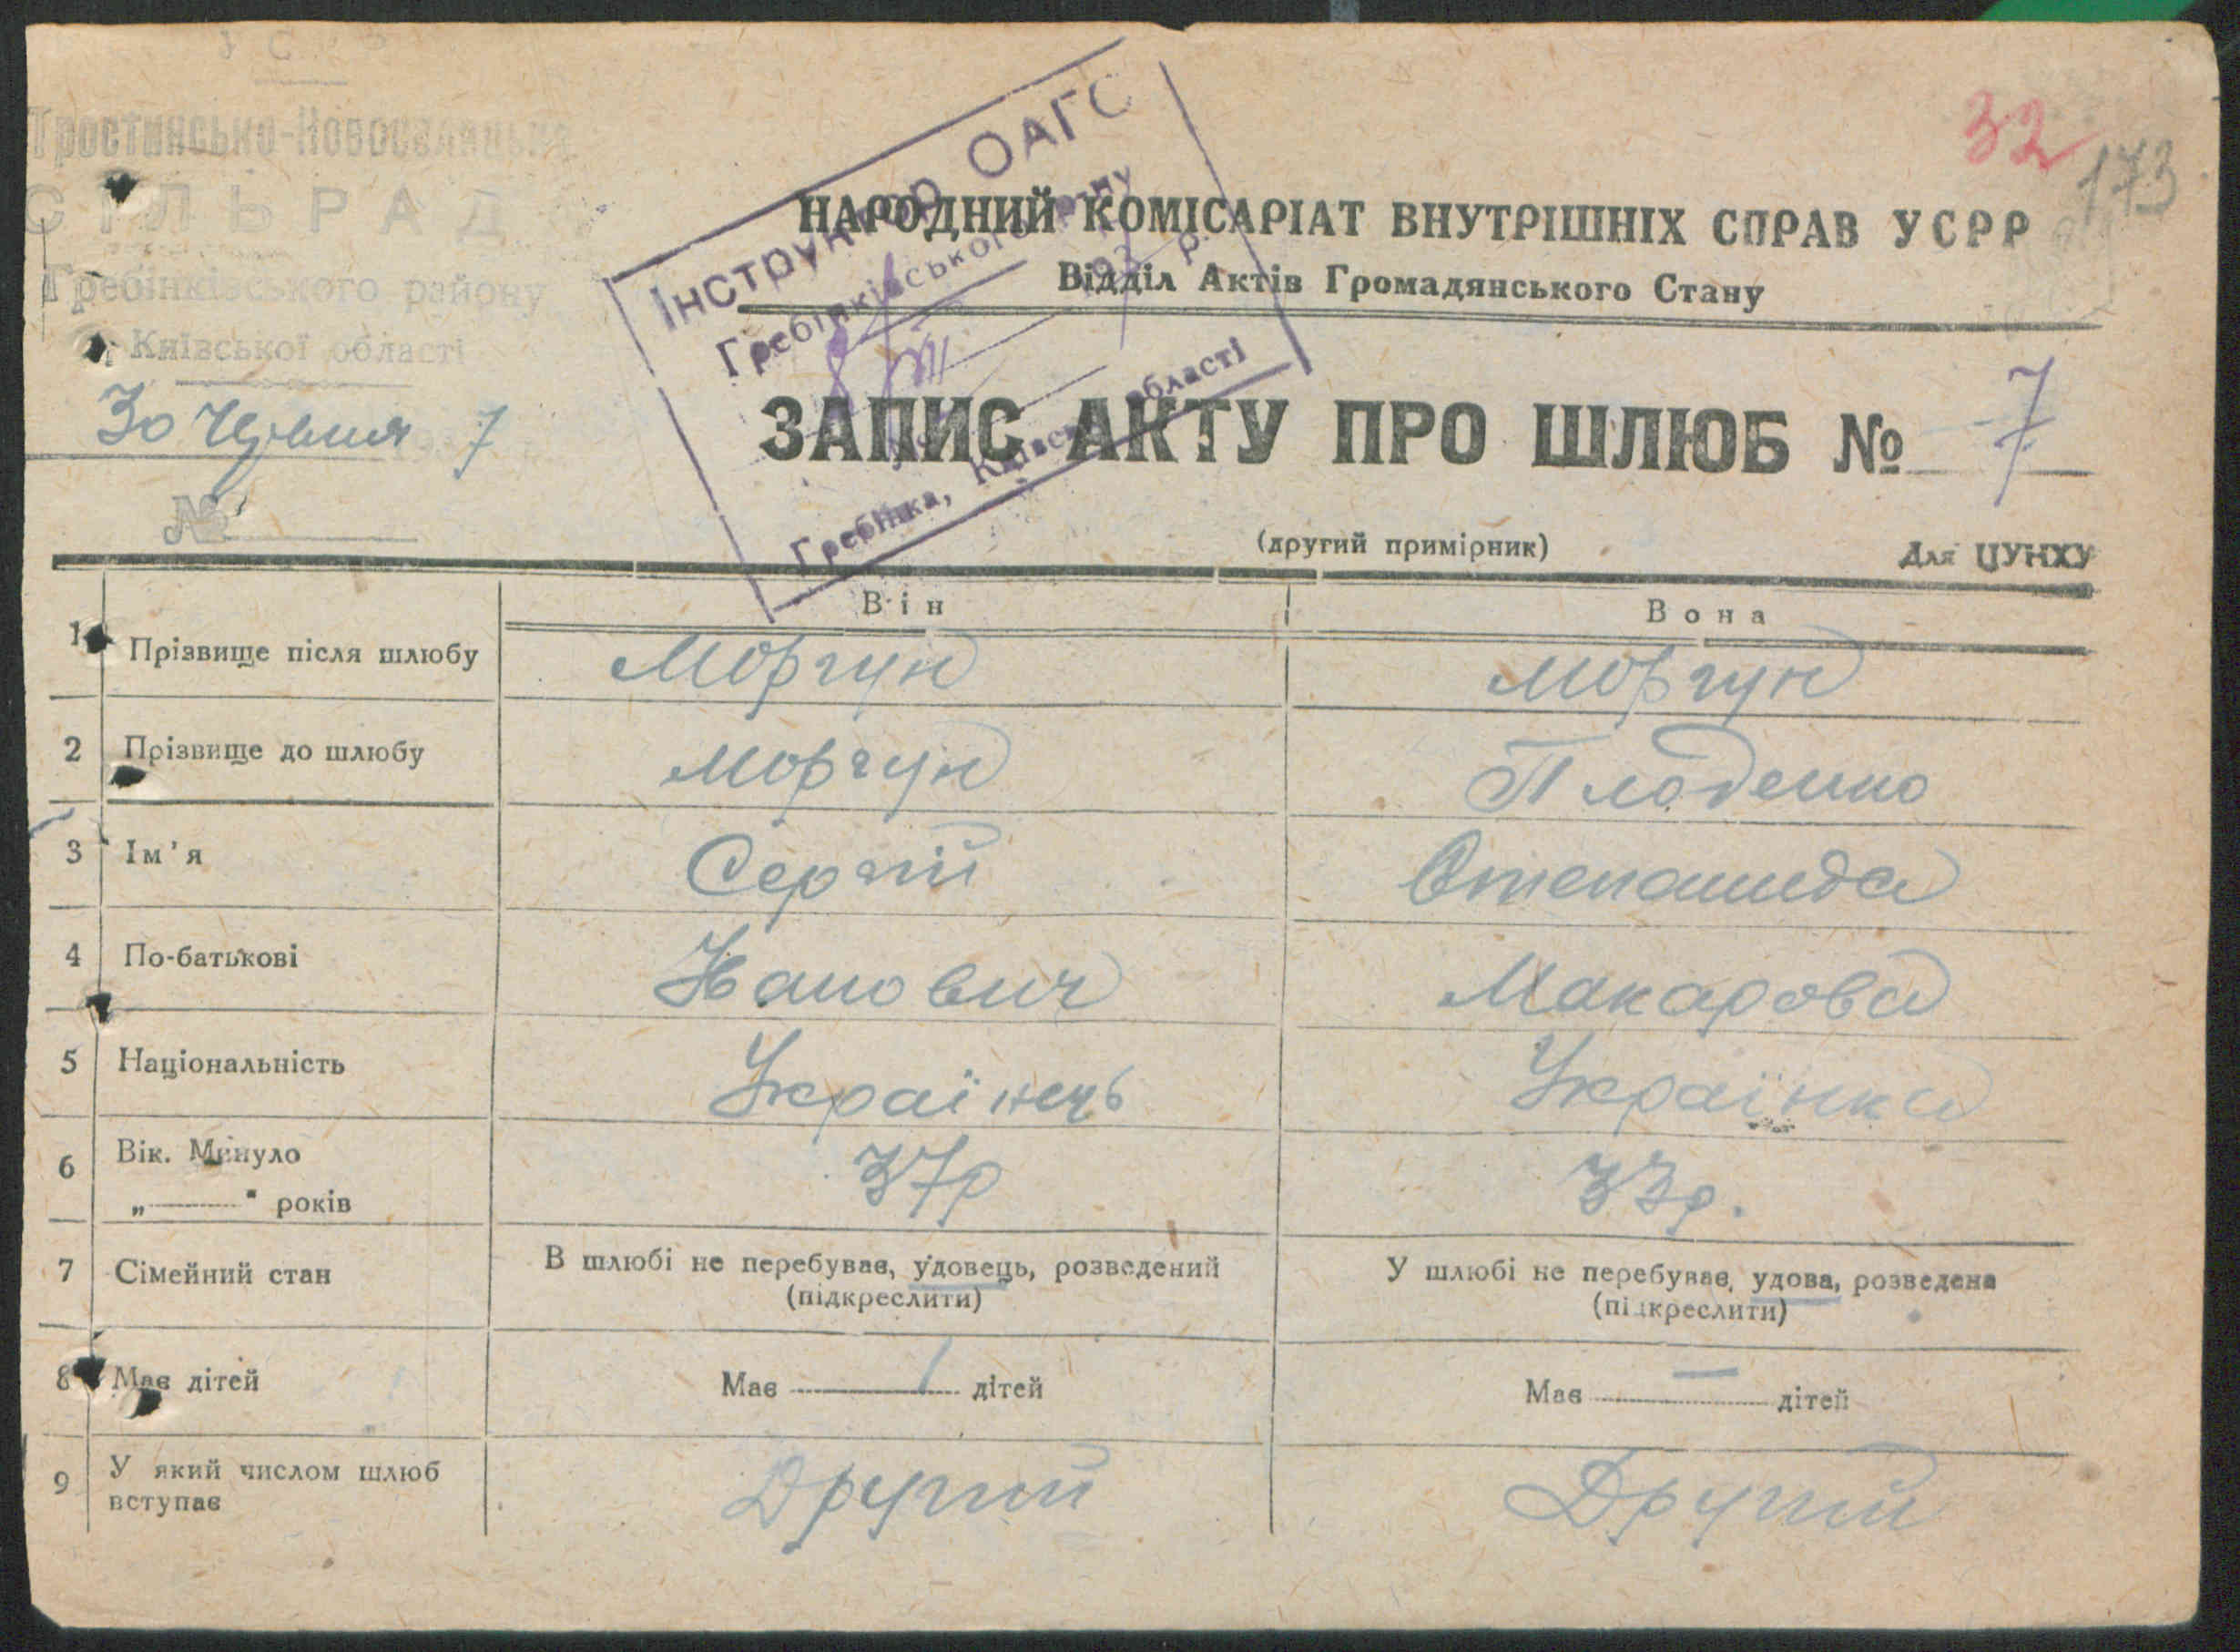 УСРР
Тростинсько-Новоселицька
СІЛЬРАДА
Гребінківського району
Київської області
30 Червня 7
№
Інструктор ОАГС
Гребінківського р-ну
8/VIII 1937 р.
Гребінка, Київської області
32
173
НАРОДНИЙ КОМІСАРІАТ ВНУТРІШНІХ СПРАВ УСРР
Відділ Актів Громадянського Стану
ЗАПИС АКТУ ПРО ШЛЮБ № 7
(другий примірник) Для ЦУНХУ
Він Вона
1 Прізвище після шлюбу Моргун Моргун
2 Прізвище до шлюбу Моргун
3 Ім'я Сергій Степанида
4 По-батькові Іванович Макарова
5 Національність Українець Українка
6 Вік. Минуло „—" років 37р 33р.
7 Сімейний стан В шлюбі не перебував, удовець, розведений У шлюбі не перебував, удова, розведена
(підкреслити) (підкреслити)
8 Має дітей Має 1 дітей Має — дітей
9 У який числом шлюб вступає Другий Другий